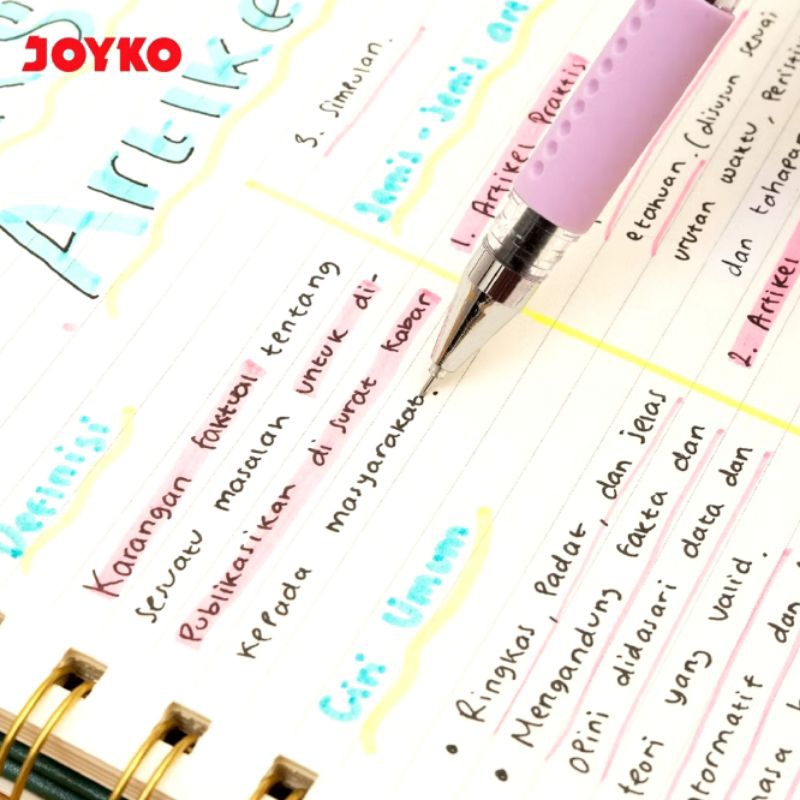 JOYKO
Artike
3. Simpulan.
Definisi
Karangan faktual tentang
sesuatu masalah untuk di-
Publikasikan di surat kabar
kepada masyarakat.
Jenis-Jenis Art
1. Artikel Praktis
etahuan. (disusun sesuai
urutan waktu, Peristi
dan tahapa
2. Artikel
Ciri Umum
• Ringkas, Padat, dan jelas
• Mengandung fakta dan
opini didasari data dan
teori yang valid.
formatif dan
asa